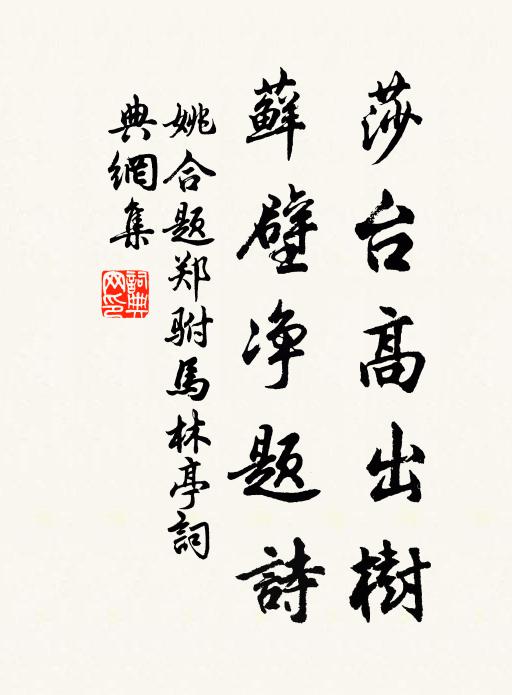 莎台高出樹
蘚壁净題詩
姚合题郑駙馬林亭詞
典網集
詞典網印